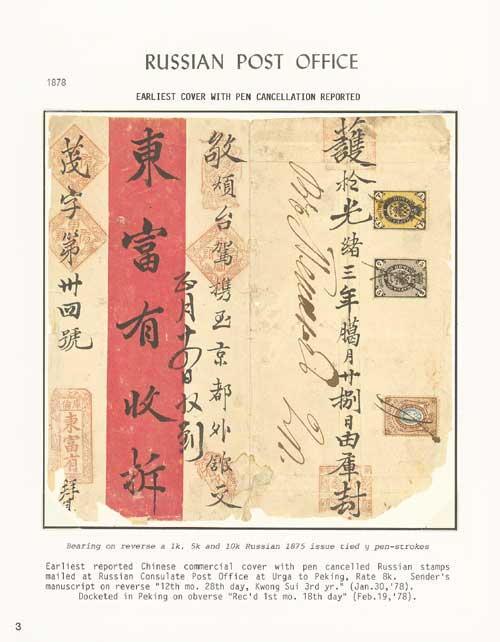 RUSSIAN POST OFFICE
1878
EARLIEST COVER WITH PEN CANCELLATION REPORTED
於光緒三年臘月廿捌日由庫封
敬煩台駕携至京都外館交
正月十八日收到
東富有收拆
茂字第卅四號
東富有
Bearing on reverse a 1k, 5k and 10k Russian 1875 issue tied y pen-strokes
Earliest reported Chinese commercial cover with pen cancelled Russian stamps
mailed at Russian Consulate Post Office at Urga to Peking, Rate 8k. Sender's
manuscript on reverse "12th mo. 28th day, Kwong Sui 3rd yr." (Jan.30,'78).
Docketed in Peking on obverse "Rec'd 1st mo. 18th day" (Feb.19,'78).
3